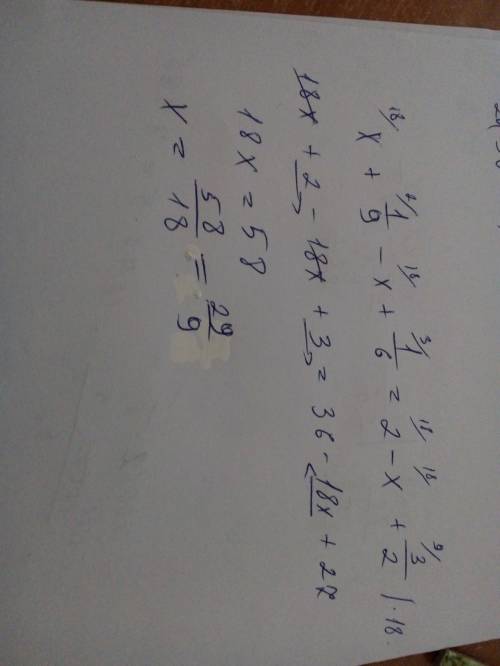 18/ x + 2/ 1/9 - 18/ x + 3/ 1/6 = 18/ 2 - 18/ x + 9/ 3/2 | ·18
18x + 2 - 18x + 3 = 36 - 18x + 27
18x = 58
x = 58/18 = 29/9